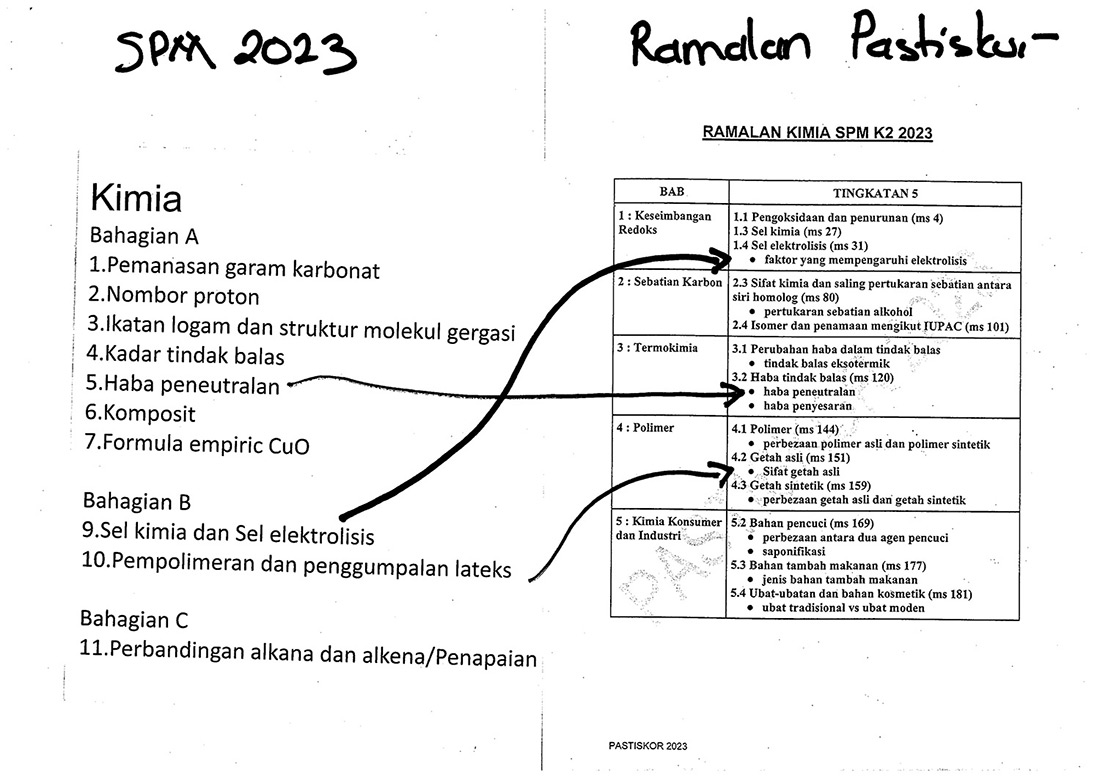 SPM 2023
Ramalan Pastiskur
Kimia
Bahagian A
1.Pemanasan garam karbonat
2.Nombor proton
3.Ikatan logam dan struktur molekul gergasi
4.Kadar tindak balas
5.Haba peneutralan
6.Komposit
7.Formula empiric CuO
Bahagian B
9.Sel kimia dan Sel elektrolisis
10.Pempolimeran dan penggumpalan lateks
Bahagian C
11.Perbandingan alkana dan alkena/Penapaian
RAMALAN KIMIA SPM K2 2023
BAB
TINGKATAN 5
1 : Keseimbangan
Redoks
1.1 Pengoksidaan dan penurunan (ms 4)
1.3 Sel kimia (ms 27)
1.4 Sel elektrolisis (ms 31)
• faktor yang mempengaruhi elektrolisis
2 : Sebatian Karbon
2.3 Sifat kimia dan saling pertukaran sebatian antara
siri homolog (ms 80)
• pertukaran sebatian alkohol
2.4 Isomer dan penamaan mengikut IUPAC (ms 101)
3 : Termokimia
3.1 Perubahan haba dalam tindak balas
• tindak balas eksotermik
3.2 Haba tindak balas (ms 120)
• haba peneutralan
• haba penyesaran
4 : Polimer
4.1 Polimer (ms 144)
• perbezaan polimer asli dan polimer sintetik
4.2 Getah asli (ms 151)
• Sifat getah asli
4.3 Getah sintetik (ms 159)
• perbezaan getah asli dan getah sintetik
5 : Kimia Konsumer
dan Industri
5.2 Bahan pencuci (ms 169)
• perbezaan antara dua agen pencuci
• saponifikasi
5.3 Bahan tambah makanan (ms 177)
• jenis bahan tambah makanan
5.4 Ubat-ubatan dan bahan kosmetik (ms 181)
• ubat tradisional vs ubat moden
PASTISKOR 2023